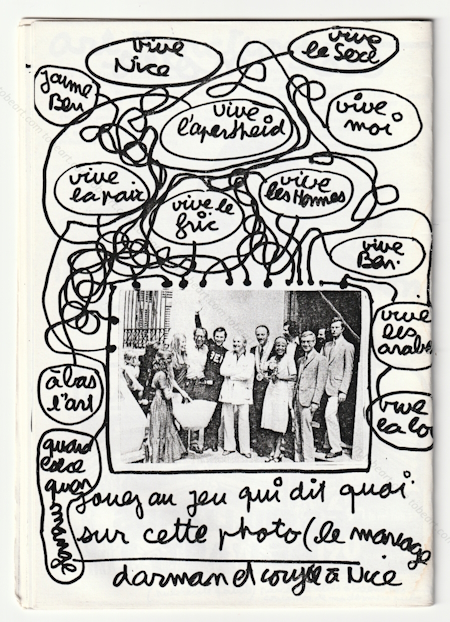 vive
Nice
vive
le Sexe
j'aime
Ben
vive
l'apertheid
vive
moi
vive
la paix
vive le
fric
vive
les Hommes
vive
Ben.
vive
les
arabes
à bas
l'art
vive
la loi
quand
est ce
quon
mange
Jouez au jeu qui dit quoi
sur cette photo (le mariage
darman et à Nice